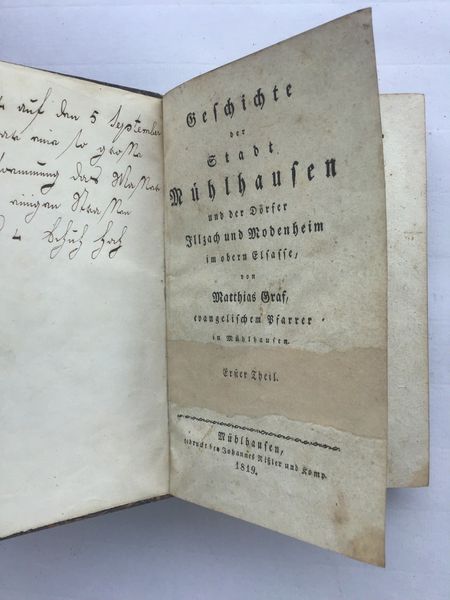 auf den 5 September
eine so große
das Wasser
einigen Straßen
4 Schuh hoch
Geschichte
der
Stadt
Mühlhausen
und der Dörfer
Illzach und Modenheim
im obern Elsasse,
von
Matthias Graf,
evangelischem Pfarrer
in Mühlhausen.
Erster Theil.
Mühlhausen,
gedruckt bey Johannes Rißler und Komp.
1819.